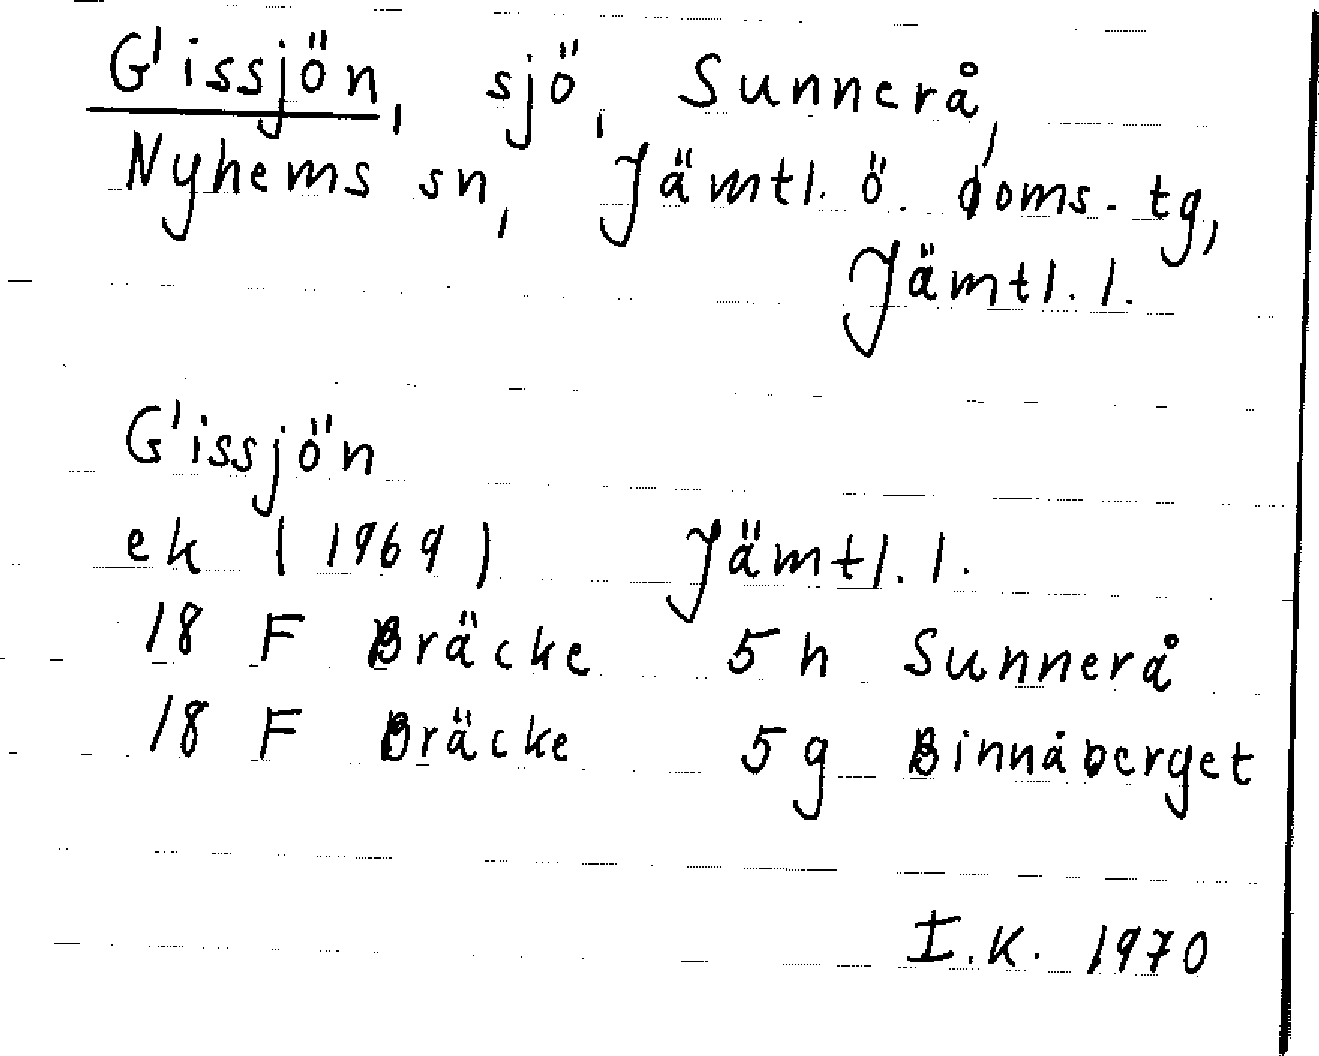 G'issjön, sjö, Sunnerå,
Nyhems sn, Jämtl. ö. doms. tg,
Jämtl. l.
G'issjön
ek (1969) Jämtl. l.
18 F Bräcke 5 h Sunnerå
18 F Bräcke 5 g Binnåberget
I.K. 1970